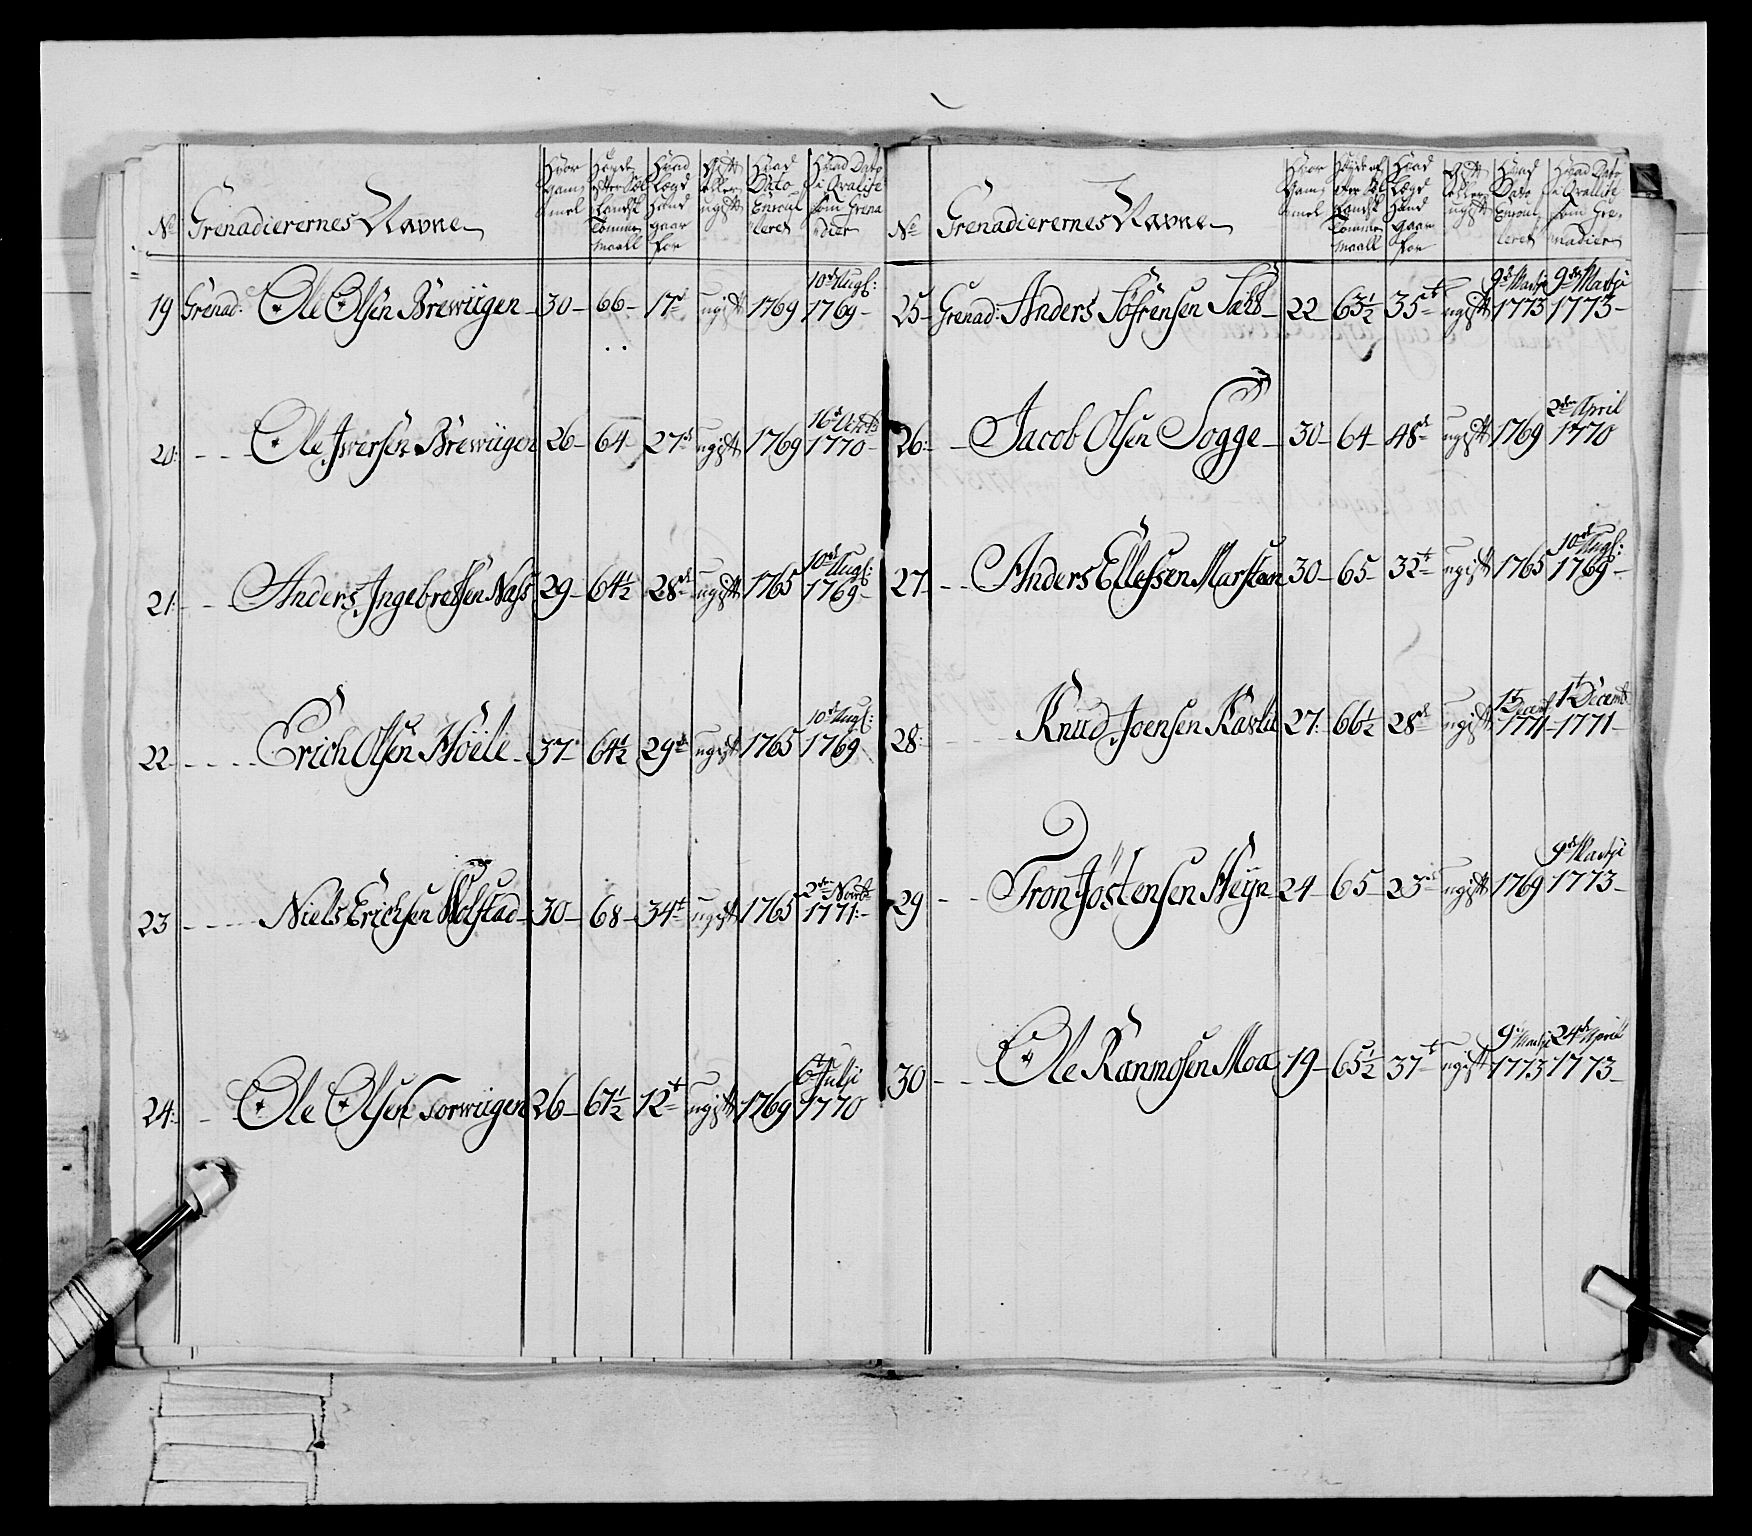 No Grenadierernes Navne
Hvor Gam̃el
Høyde efter Sæl Landsk Tommer Maall
Hvad Lægd Hand gaar for
Gift eller ugift
Hvad Dato Enroul leret
Hvad Dato i Qvalite som Grena dier
19 Grenad: Ole Olsen Brewiigen 30 66 17de ugift 1769 10de Augs: 1769
20 Ole Iversen Brewiigen 26 64 27de ugift 1769 16de 1770
21 Anders Ingebretsen Nass 29 64½ 28de ugift 1765 10de Augs: 1769
22 Erich Olsen Høele 37 64½ 29de ugift 1765 10de Augs: 1769
23 Niels Erichsen Holstad 30 68 34te ugift 1765 2den Novb 1771
24 Ole Olsen Torwiigen 26 67½ 12te ugift 1769 6te Julij 1770
No Grenadierernes Navne
Hvor Gam̃el
Høyde efter Sæl Landsk Tommer Maall
Hvad Lægd Hand gaar for
Gift eller ugift
Hvad Dato Enroul leret
Hvad Dato i Qvalite som Gre nadier
25 Grenad: Anders Søfrensen Sæbb 22 63½ 35te ugift 9de Martji 1773 9de Martji 1773
26 Jacob Olsen Sogge 30 64 48de ugift 1769 2den April 1770
27 Anders Ellefsen Marstean 30 65 32te ugift 1765 10de Augs: 1769
28 Knud Joensen Kavlie 27 66½ 28de ugift 1t Decemb 1771 1t Decemb 1771
29 Tron Jøstensen Heijn 24 65 23de ugift 1769 9de Martji 1773
30 Ole Ranmosen Moa 19 65½ 37te ugift 9de Martji 1773 24de April 1773